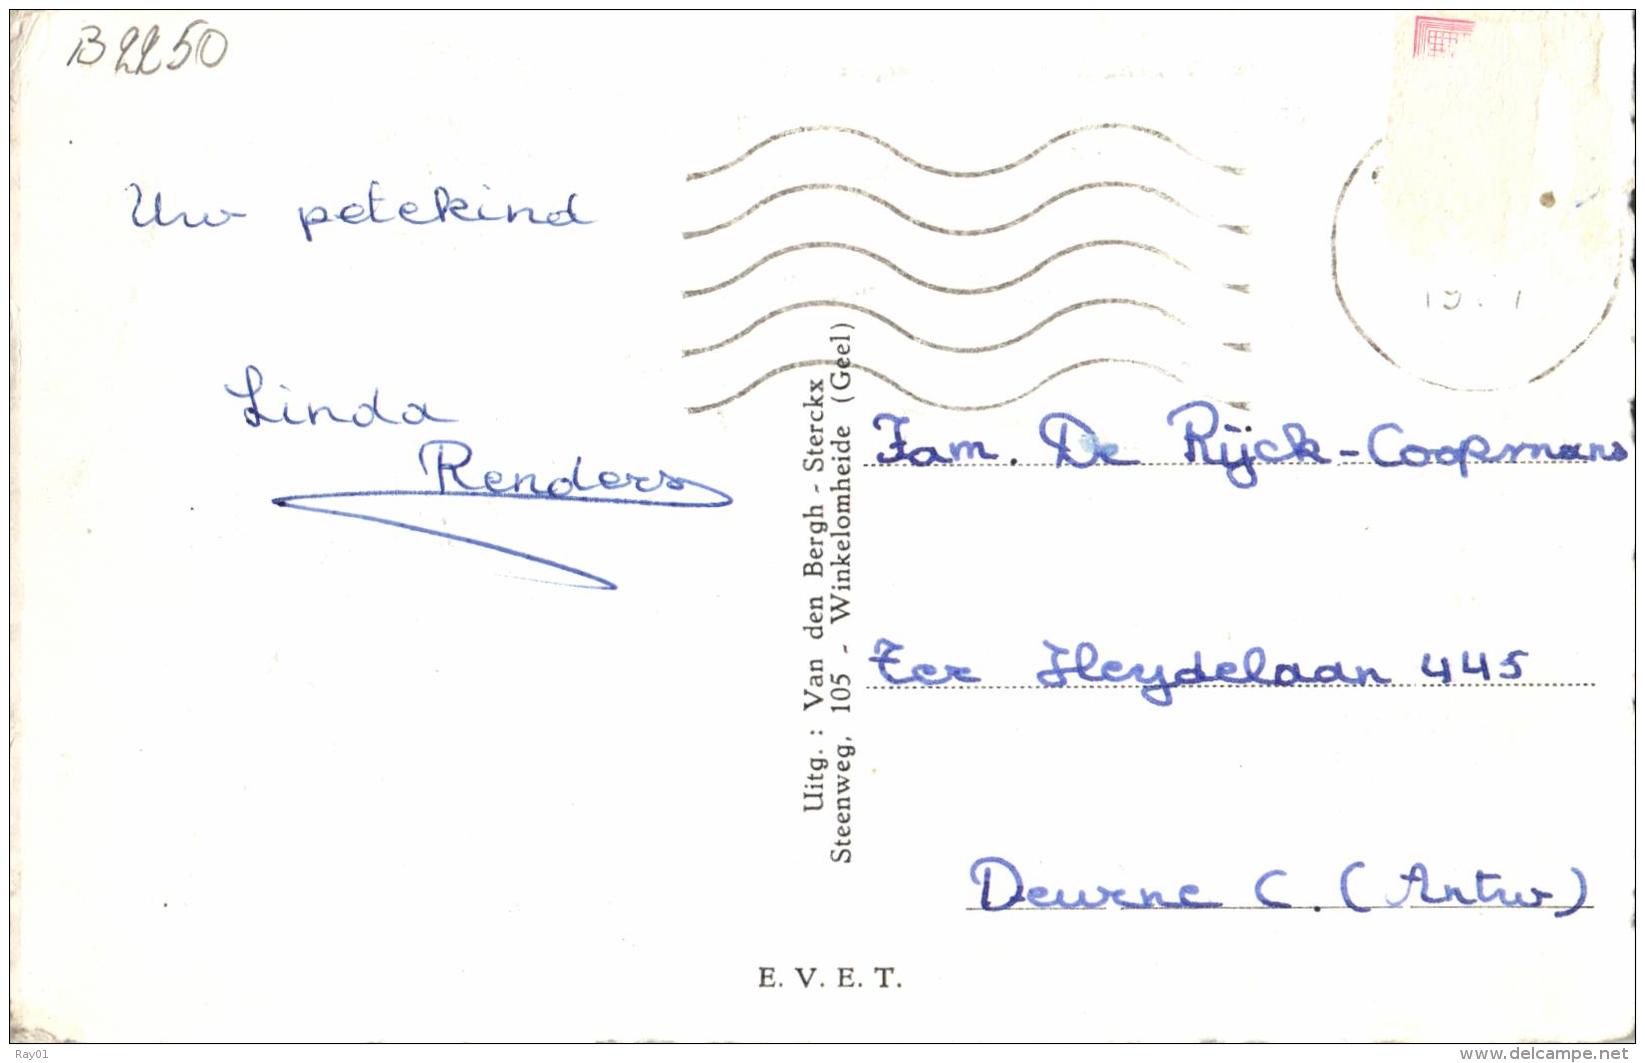 B2250
Uw petekind
Linda
Renders
Uitg. : Van den Bergh - Sterckx
Steenweg, 105 - Winkelomheide (Geel)
Fam. De Rijck-Coopmans
Ter Heydelaan 445
Deurne C. (Antw)
E. V. E. T.
Ray01
delcampe.net